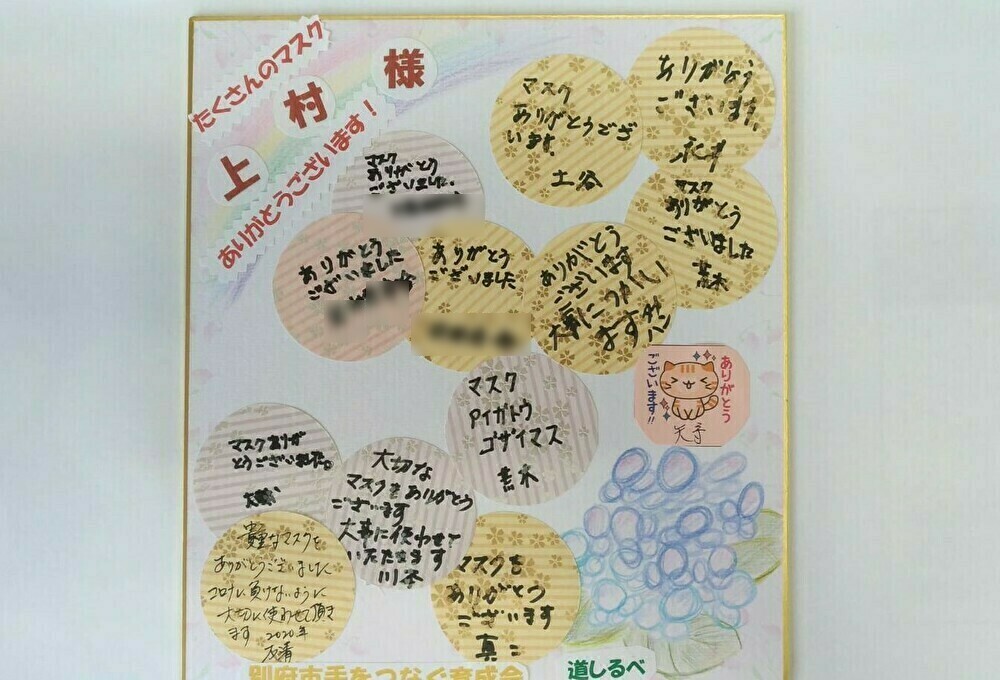 たくさんのマスク
上村様
ありがとうございます！
マスク
ありがとうござ
います。
土谷
ありがとう
ございます。
マスク
ありがとう
ございました。
マスク
ありがとう
ございました
荒木
ありがとう
ございました
ありがとう
ございました
ありがとう
ございます
大事につかい
ます
ありがとう
ございます!!
マスク
アイガトウ
ゴザイマス
荒木
マスクありが
とうございました。
大切な
マスクをありがとう
ございます
大事に使わせて
いただきます
貴重なマスクを
ありがとうございました
コロナに負けないように
大切に使わせて頂き
ます 2020年
友清
マスクを
ありがとう
ございます
真二
別府市手をつなぐ育成会
道しるべ